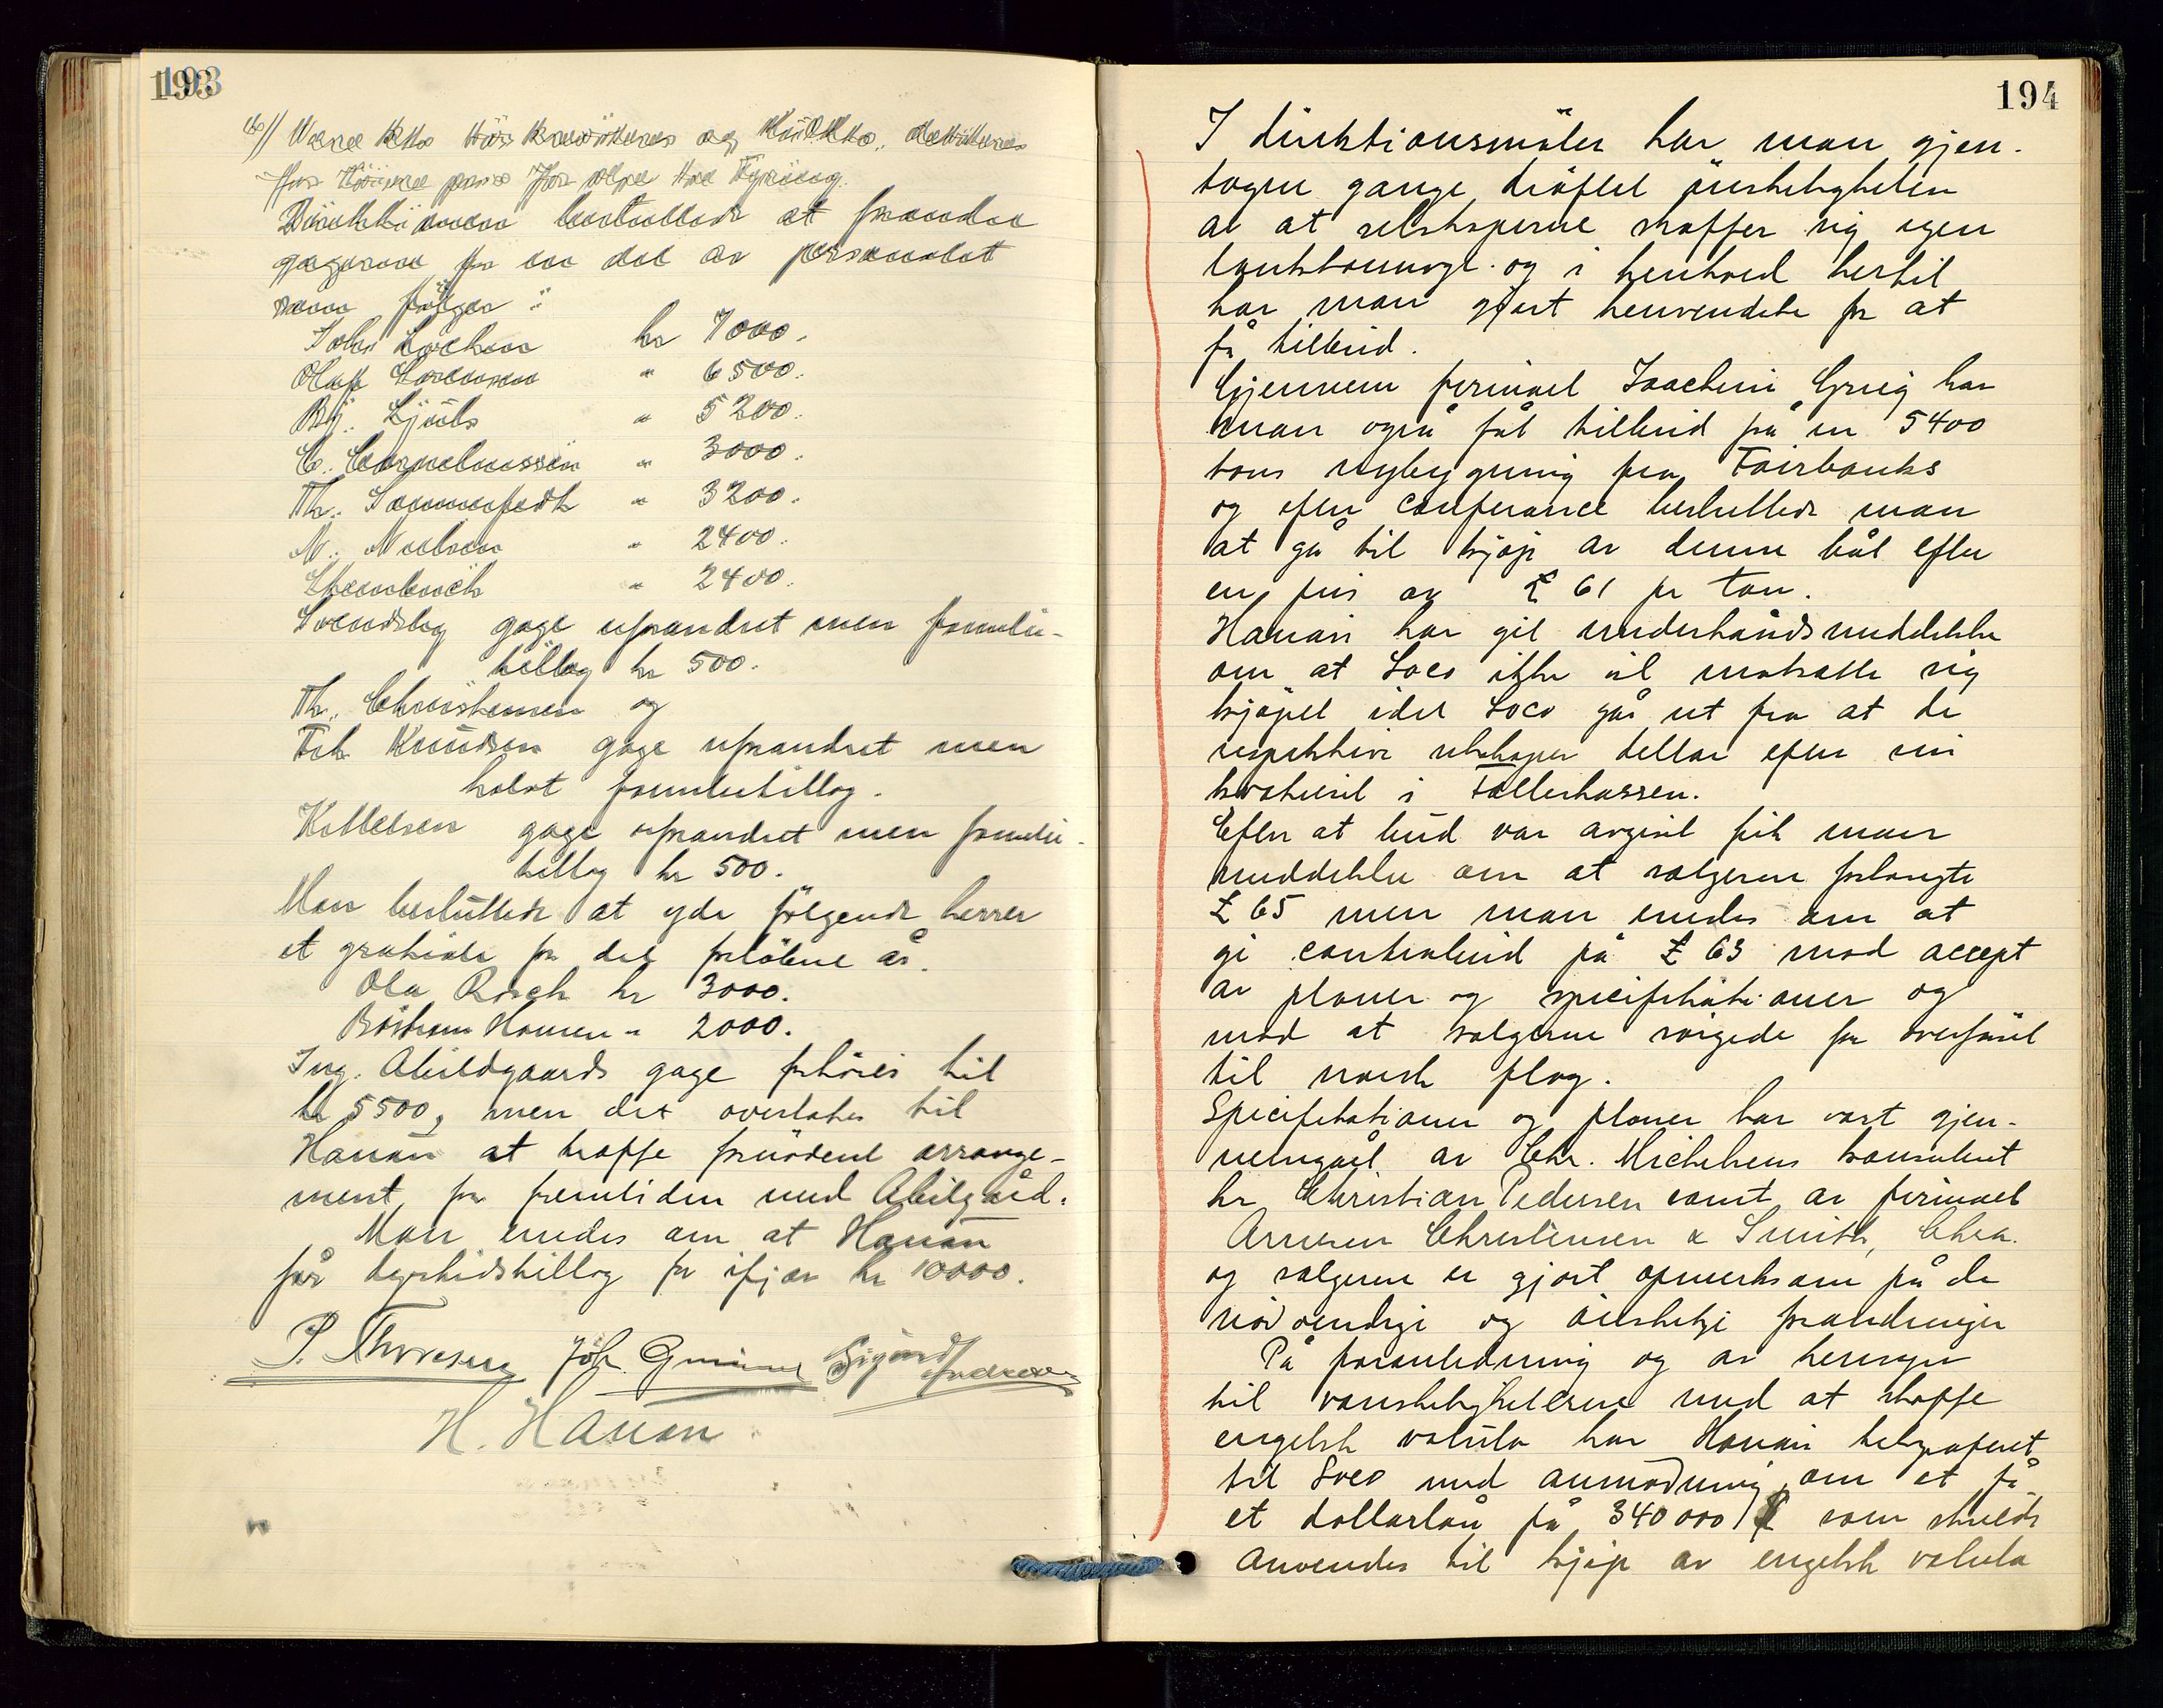 193
Direktionen besluttede at forandre
gagerne for en del av personalet
som følger:
John Lochen kr 7000.
Olaf Sorensen " 6500.
Bj. Ljubs " 5200.
C. Corneliussen " 3000.
Th. Sommerfeldt " 3200.
N. Nielsen " 2400.
" 2400.
gage uforandret men familie-
tillæg kr 500.
Th. Christensen og
Fth Knudsen gage uforandret men
halvt familietillæg.
Kittelsen gage uforandret men familie-
tillæg kr 500.
Man besluttede at yde følgende herrer
et gratiale for det forløbne år.
Ola Rosch kr 3000.
Bøstrøm Hansen " 2000.
Ing. Abildgaards gage forhøies til
kr 5500, men det overlates til
Hanan at træffe fornødent arrange-
ment for fremtiden med Abilgård.
Man enedes om at Hanan
får dyrtidstillæg for ifjor kr 10000.
P. Thoresen Joh. Sigurd Andresen
H. Hanan
194
I direktionsmøter har man gjen-
tagne gange drøftet ønskeligheten
av at selskaperne skaffer sig egen
tanktonnage og i henhold hertil
har man gjort henvendelse for at
få tilbud.
Gjennem firmaet Joachim Grieg har
man også fåt tilbud på en 5400
tons nybygning fra Fairbanks
og efter conferance besluttede man
at gå til kjøp av denne båt efter
en pris av £ 61 pr ton.
Hanan har git underhåndsmeddelelse
om at Soco ikke vil motsætte sig
kjøpet idet Soco går ut fra at de
respektive selskaper deltar efter sin
kvotient i Felleskassen.
Efter at bud var avgivet fik man
meddelelse om at sælgeren forlangte
£ 65 men man enedes om at
gi contrabud på £ 63 mod accept
av planer og specifikationer og
mod at sælgerne sørgede for overførsel
til norsk flag.
Specifikationer og planer har vært gjen-
nemgået av Chr. Michelsens konsulent
hr Christian Pedersen samt av firmaet
Arnesen Christensen & Smith, Chra.
og sælgerne er gjort opmerksom på de
nødvendige og ønskelige forandringer
På foranledning og av hensyn
til vanskelighetene med at skaffe
engelsk valuta har Hanan telegraferet
til Soco med anmodning om at få
et dollarlån på 340000 $ som skulde
anvendes til kjøp av engelsk valuta